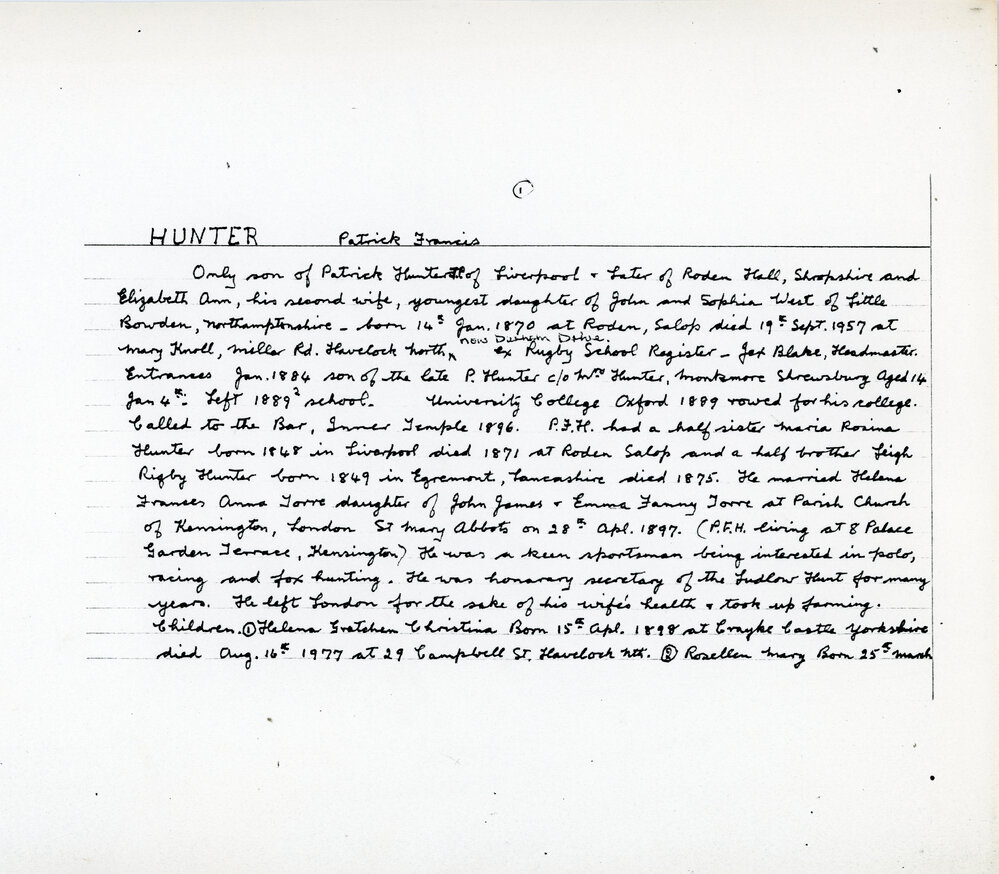 ①
HUNTER Patrick Francis
Only son of Patrick Hunter of Liverpool + later of Roden Hall, Shropshire and
Elizabeth Ann, his second wife, youngest daughter of John and Sophia West of Little
Bowden, Northamptonshire - born 14th Jan. 1870 at Roden, Salop died 19th Sept. 1957 at
now Durham Drive.
Mary Knoll, Miller Rd. Havelock North, ^ ex Rugby School Register - Jex Blake, Headmaster.
Entrances Jan. 1884 son of the late P. Hunter c/o Mrs Hunter, Monksmore Shrewsbury Aged 14
Jan 4th - Left 1889² school. University College Oxford 1889 rowed for his college.
Called to the Bar, Inner Temple 1896. P.F.H. had a half sister Maria Rosina
Hunter born 1848 in Liverpool died 1871 at Roden Salop and a half brother Leigh
Rigby Hunter born 1849 in Egremont, Lancashire died 1875. He married Helena
Frances Anna Torre daughter of John James + Emma Fanny Torre at Parish Church
of Kensington, London St Mary Abbots on 28th Apl. 1897. (P.F.H. living at 8 Palace
Garden Terrace, Kensington) He was a keen sportsman being interested in polo,
racing and fox hunting. He was honarary secretary of the Ludlow Hunt for many
years. He left London for the sake of his wife's health + took up farming.
Children. ① Helena Gretchen Christina Born 15th Apl. 1898 at Crayke Castle Yorkshire
died Aug. 16th 1977 at 29 Campbell St. Havelock Nth. ② Rosellen Mary Born 25th March